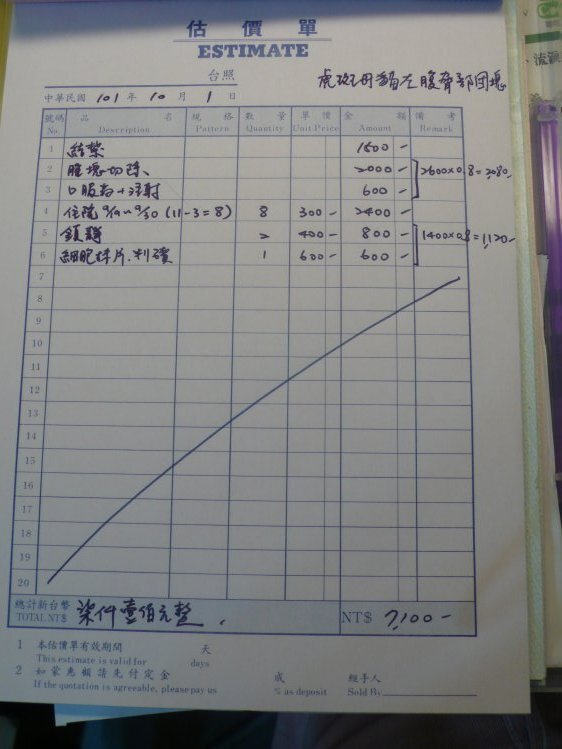 估價單
ESTIMATE
台照 虎斑母貓左腹脅部团塊
中華民國 101 年 10 月 1 日
號碼 品名 規格 數量 單價 金額 備考
No. Description Pattern Quantity Unit Price Amount Remark
1 結紮 1500-
2 腫塊切除 2000- 2600x0.8=2080-
3 口服藥+注射 600-
4 住院 9/19~9/30 (11-3=8) 8 300- 2400-
5 鎮靜 2 400- 800- 1400x0.8=1,120-
6 細胞抹片.判讀 1 600- 600-
7
8
9
10
11
12
13
14
15
16
17
18
19
20
總計新台幣 柒仟壹佰元整.
TOTAL NT$ NT$ 7,100-
1 本估價單有效期間 天
This estimate is valid for days
2 如蒙惠顧請先付定金 成 經手人
If the quotation is agreeable, please pay us % as deposit Sold By